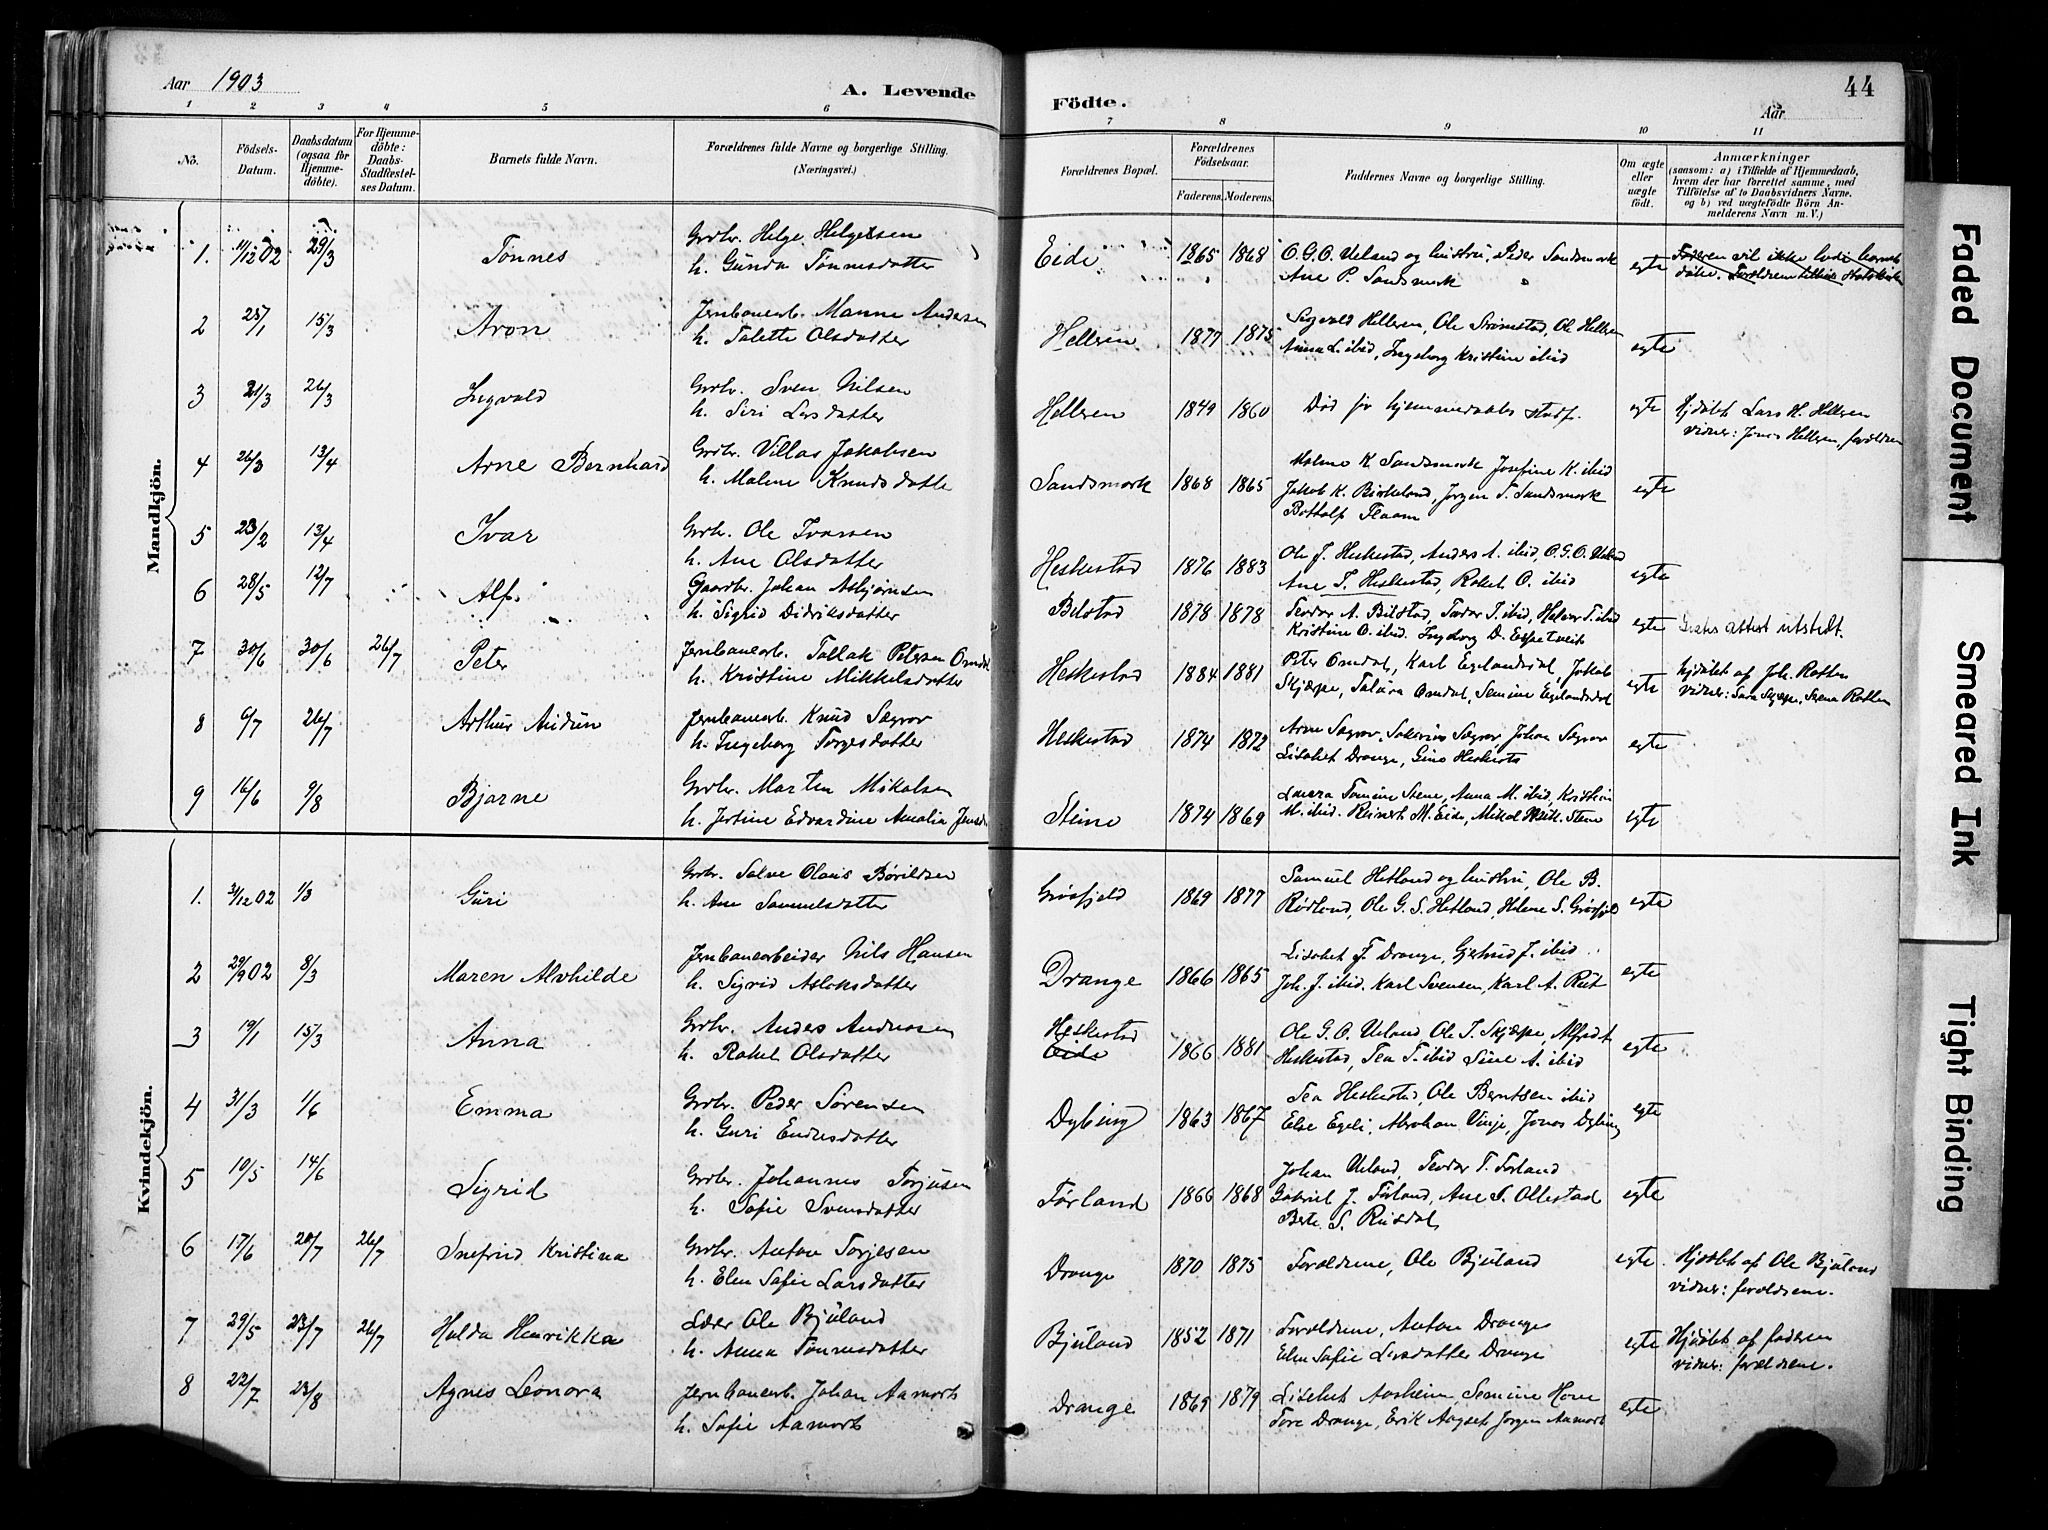 Aar 1903
A. Levende
Födte.
44
Aar
1 2 3 4 5 6 7 8 9 10 11
No.
Födsels-
Datum.
Daabsdatum
(ogsaa for
Hjemme-
döbte).
For Hjemme-
döbte:
Daabs-
Stadfæstel-
ses Datum.
Barnets fulde Navn.
Forældrenes fulde Navne og borgerlige Stilling.
(Næringsvei.)
Forældrenes Bopæl.
Forældrenes
Födselsaar.
Faderens. Moderens.
Faddernes Navne og borgerlige Stilling.
Om ægte
eller
uægte
födt.
Anmærkninger
(saasom: a) i Tilfælde af Hjemmedaab,
hvem der har forrettet samme, med
Tilföielse af to Daabsvidners Navne.
og b) ved uægtefödte Börn An-
melderens Navn m. V.)
Mandkjön.
1. 11/12 02 29/3 Tönnes
Grdbr. Helge Helgesen
h. Gunda Tönnesdatter
Eide 1865 1868
O.G.O. Ueland og hustru, Peder Sandsmork
Ane P. Sandsmork
egte
Faderen vil ikke lade barnet
döbe. Forældrene tilhøre Statskirken
2 25/1 15/3 Aron
Jernbanearb. Manne Andersen
h. Talette Olsdatter
Helleren 1877 1875
Sigvald Helleren, Ole Strömstad, Ole Helleren
Anna L. ibid, Ingeborg Kristine ibid
egte
3 21/3 26/3 Ingvald
Grdbr. Sven Nilsen
h. Siri Larsdatter
Helleren 1849 1860
Död för hjemmedaabs stadf.
egte
Hjdöbt Lars H. Helleren
vidner: Jonas Helleren, forældrene
4 26/3 13/4 Arne Bernhard
Grdbr. Villas Jakobsen
h. Malene Knudsdatte
Sandsmork 1868 1865
Malene K. Sandsmork Josefine K. ibid
Jakob K. Birkeland, Jörgen T. Sandsmork
Bottolf Flaam
egte
5 23/2 13/4 Ivar
Grdbr. Ole Ivarsen
h. Ane Olsdatter
Heskestad 1876 1883
Ole J. Heskestad, Anders A. ibid, O.G.O. Ueland
Ane T. Heskestad, Rakel O. ibid
egte
6 28/5 12/7 Alf
Gaardbr. Johan Asbjörnsen
h. Sigrid Didriksdatter
Bilstad 1878 1878
Teodor A. Bilstad, Tordar T. ibid, Halvor T. ibid
Kristine O. ibid. Ingeborg D. Espetveit
egte
Gratis attest utstedt.
7 30/6 30/6 26/7 Peter
Jernbanearb. Tallak Petersen Omdal
h. Kristine Mikkelsdatter
Heskestad 1884 1881
Peter Omdal, Karl Egelandsdal, Jakob
Skjæpe, Talara Omdal, Semine Egelandsdal
egte
hjdöbt af Joh. Rotten
vidner: Sara Skjæpe, Serena Rotten
8 6/7 26/7 Arthur Audun
Jernbanearb. Knud Sægrov
h. Ingeborg Torgesdatter
Heskestad 1874 1872
Arne Sægrov, Sakarias Sægrov Johan Sægrov
Lisabet Drange, Gina Heskestad
egte
9 16/6 9/8 Bjarne
Grdbr. Martin Mikalsen
h. Jertine Edvardine Amalia Jensd.
Stene 1874 1869
Laura Tomine Stene, Anna M. ibid, Kristian
M. ibid. Reinert M. Eide, Mikal Mikk. Stene
egte
Kvindekjön.
1. 31/12 02 1/3 Guri
Grdbr. Salve Olaus Börildsen
h. Ane Samuelsdatter
Grösfjeld 1869 1877
Samuel Hetland og hustru, Ole B.
Rödland, Ole G. S. Hetland, Helene S. Grösfjeld
egte
2 29/9 02 8/3 Maren Alvhilde
Jernbanearbeider Nils Hansen
h. Sigrid Aslaksdatter
Drange 1866 1865
Lisabet J. Drange, Gjertrud J. ibid
Joh. J. ibid. Karl Svensen, Karl A. Rut
egte
3 19/1 15/3 Anna
Grdbr. Anders Andreasen
h. Rakel Olsdatter
Heskestad
Eide 1866 1881
Ole G. O. Ueland, Ole T. Skjæpe, Alfred T.
Heskestad, Tea T. ibid Sine A. ibid
egte
4 31/3 1/6 Emma
Grdbr. Peder Sörensen
h. Guri Endresdatter
Dybing 1863 1867
Tea Heskestad, Ole Berntsen ibid
Else Egeli, Abraham Vinje, Jonas Dybing
egte
5 10/5 14/6 Sigrid
Grdbr. Johannes Torjusen
h. Sofie Svensdatter
Förland 1866 1868
Johan Ueland, Teodor T. Förland
Gabriel J. Förland, Ane S. Ollestad
Berte S. Rusdal
egte
6 17/6 20/7 26/7 Snefrid Kristina
Grdbr. Anton Torjesen
h. Elen Sofie Larsdatter
Drange 1870 1875
Foreldrene, Ole Bjuland
egte
Hjdöbt af Ole Bjuland
vidner: foreldrene.
7 29/5 23/7 26/7 Hulda Henrikka
Lærer Ole Bjuland
h. Anna Tönnesdatter
Bjuland 1852 1871
Foreldrene, Anton Drange
Elen Sofie Larsdatter Drange
egte
Hjdöbt af faderen
vidner: foreldrene.
8 22/7 23/8 Agnes Leonora
Jernbanearb. Johan Aamodt
h. Sofie Aamodt
Drange 1869 1879
Lisabet Aasheim, Semine Hove
Tore Drange, Erik Aagset, Jörgen Aamodt
egte
Faded Document
Smeared Ink
Tight Binding